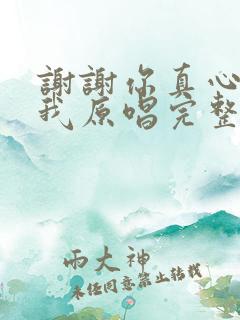 謝謝你真心
我原唱完整
兩大神
未經同意禁止轉載